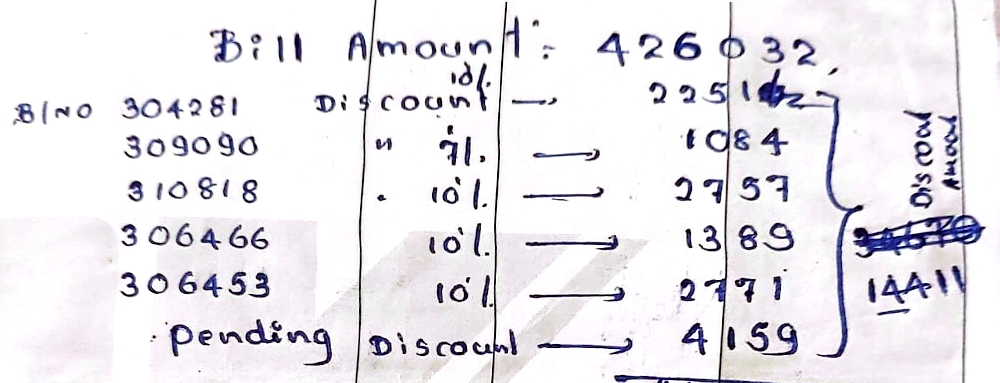 Bill Amount: 426032
10%
B/NO 304281 Discount → 2251
309090 " 7%. → 1084
310818 " 10%. → 2757
306466 10%. → 1389
306453 10%. → 2771
pending Discount → 4159
Discount Amount
14411